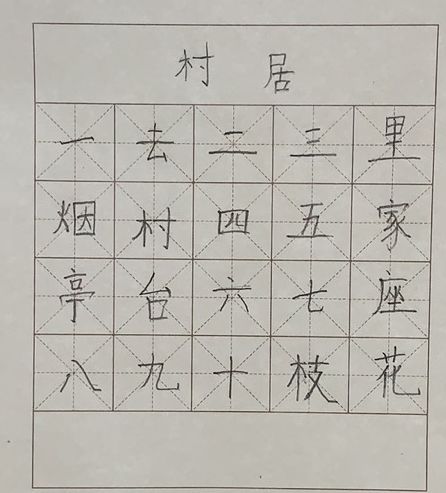 村居
一去二三里
烟村四五家
亭台六七座
八九十枝花